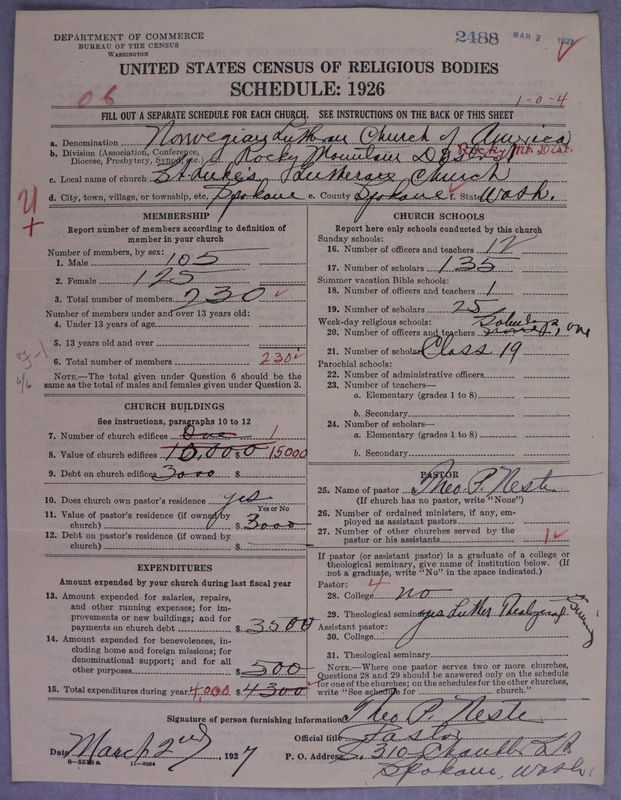 DEPARTMENT OF COMMERCE
BUREAU OF THE CENSUS
WASHINGTON
2488 MAR 1927
UNITED STATES CENSUS OF RELIGIOUS BODIES
SCHEDULE: 1926
1-0-4
FILL OUT A SEPARATE SCHEDULE FOR EACH CHURCH. SEE INSTRUCTIONS ON THE BACK OF THIS SHEET
a. Denomination Norwegian Lutheran Church of America
b. Division (Association, Conference, Diocese, Presbytery, Synod, etc.) Rocky Mountain District Rocky Mt. Dist.
c. Local name of church St. Luke's Lutheran Church
d. City, town, village, or township, etc. Spokane e. County Spokane f. State Wash.
MEMBERSHIP
Report number of members according to definition of
member in your church
Number of members, by sex:
1. Male 105
2. Female 125
3. Total number of members 230
Number of members under and over 13 years old:
4. Under 13 years of age
5. 13 years old and over
6. Total number of members 230
NOTE.—The total given under Question 6 should be
same as the total of males and females given under Question 3.
CHURCH BUILDINGS
See instructions, paragraphs 10 to 12
7. Number of church edifices One 1
8. Value of church edifices 10,000 $ 15000
9. Debt on church edifices 3000 $
10. Does church own pastor's residence yes
Yes or No
11. Value of pastor's residence (if owned by
church) $ 3000
12. Debt on pastor's residence (if owned by
church) $
EXPENDITURES
Amount expended by your church during last fiscal year
13. Amount expended for salaries, repairs,
and other running expenses; for im-
provements or new buildings; and for
payments on church debt $ 3500
14. Amount expended for benevolences, in-
cluding home and foreign missions; for
denominational support; and for all
other purposes $ 500
15. Total expenditures during year 4,000 $ 4300
CHURCH SCHOOLS
Report here only schools conducted by this church
Sunday schools:
16. Number of officers and teachers 12
17. Number of scholars 135
Summer vacation Bible schools:
18. Number of officers and teachers 1
19. Number of scholars 25
Week-day religious schools:
20. Number of officers and teachers one
21. Number of scholars Class 19
Parochial schools:
22. Number of administrative officers
23. Number of teachers—
a. Elementary (grades 1 to 8)
b. Secondary
24. Number of scholars—
a. Elementary (grades 1 to 8)
b. Secondary
PASTOR
25. Name of pastor Theo. P. Neste
(If church has no pastor, write "None")
26. Number of ordained ministers, if any, em-
ployed as assistant pastors
27. Number of other churches served by the
pastor or his assistants 1
If pastor (or assistant pastor) is a graduate of a college or
theological seminary, give name of institution below. (If
not a graduate, write "No" in the space indicated.)
Pastor: 4
28. College no
29. Theological seminary yes Luther Theological Seminary
Assistant pastor:
30. College
31. Theological seminary
NOTE.—Where one pastor serves two or more churches,
Questions 28 and 29 should be answered only on the schedule
for one of the churches; on the schedules for the other churches,
write "See schedule for church."
Signature of person furnishing information Theo. P. Neste
Official title Pastor
Date March 2nd, 1927 P. O. Address S. 310
Spokane, Wash.